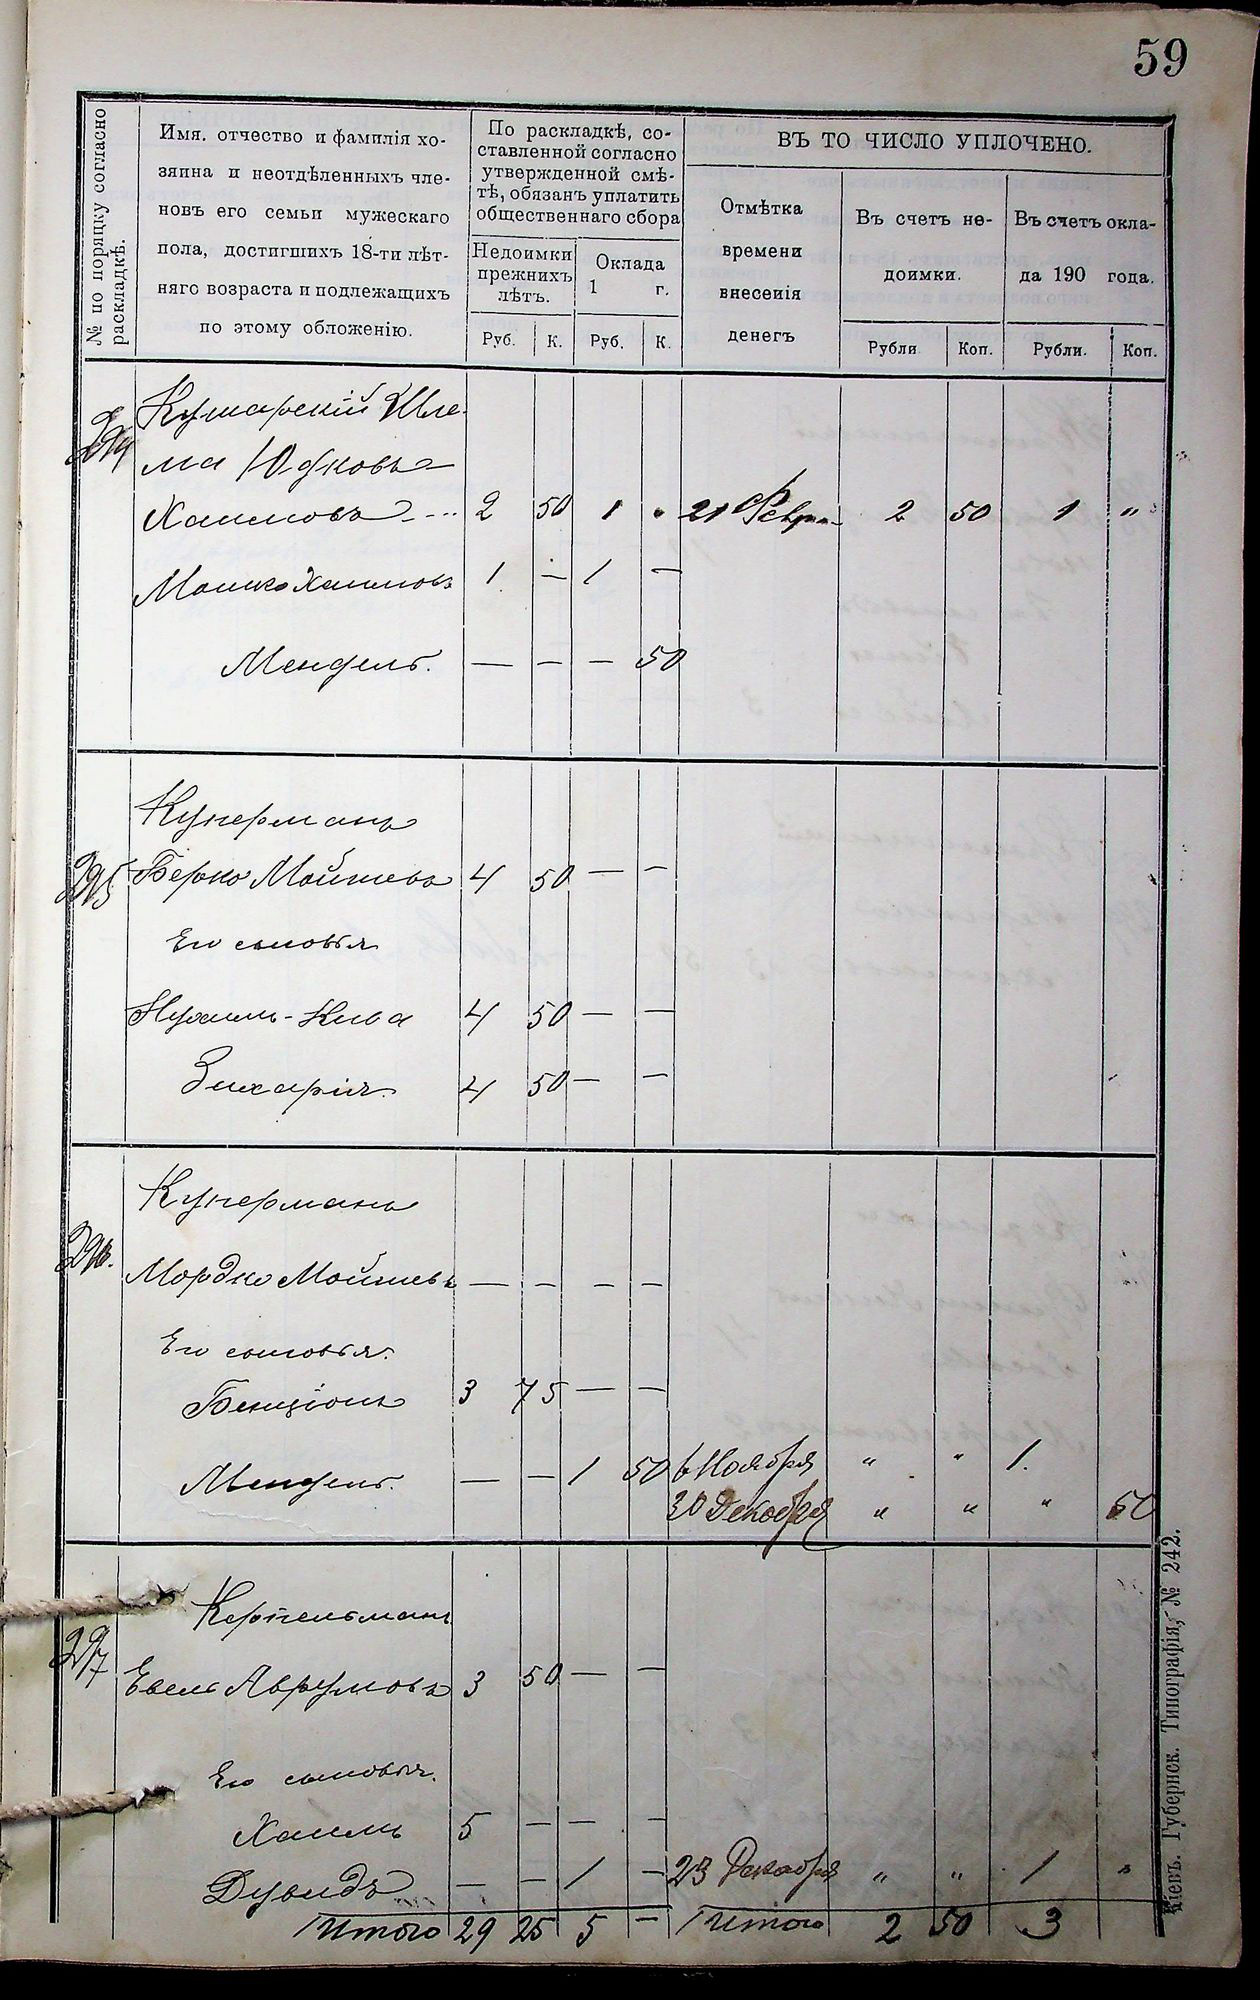 59
№ по поряцку согласно раскладкѣ.
Имя. отчество и фамилія хо-
зяина и неотдѣленныхъ чле-
новъ его семьи мужескаго
пола, достигшихъ 18-ти лѣт-
няго возраста и подлежащихъ
по этому обложенію.
По раскладкѣ, со-
ставленной согласно
утвержденной смѣ-
тѣ, обязанъ уплатить
общественнаго сбора
Недоимки
прежнихъ
лѣтъ.
Оклада
1 г.
Руб. К. Руб. К.
ВЪ ТО ЧИСЛО УПЛОЧЕНО.
Отмѣтка
времени
внесенія
денегъ
Въ счетъ не-
доимки.
Въ счетъ окла-
да 190 года.
Рубли Коп. Рубли. Коп.
294
Кушарскій Шле-
ма Юдковъ
Хаимовъ 2 50 1 " 21 Февр. 2 50 1 "
Мошко Хаимовъ 1 — 1 —
Мендель. — — — 50
295
Куперманъ
Берко Мойшевъ 4 50 — —
Его сыновья
Нухимъ-Кива 4 50 — —
Захарія. 4 50 — —
296.
Куперманъ
Мордко Мойшевъ — — — —
Его сыновья.
Бенціонъ 3 75 — —
Мендель. — — 1 50 6 Ноября " " 1.
30 Декабря " " " 50
297
Керпельманъ
Евель Аврумовъ 3 50 — —
Его сыновья.
Хаимъ 5 — — —
Дувидъ — — 1 — 23 Декабря " " 1 "
Итого 29 25 5 — Итого 2 50 3
Кіевъ. Губернск. Типографія, № 242.